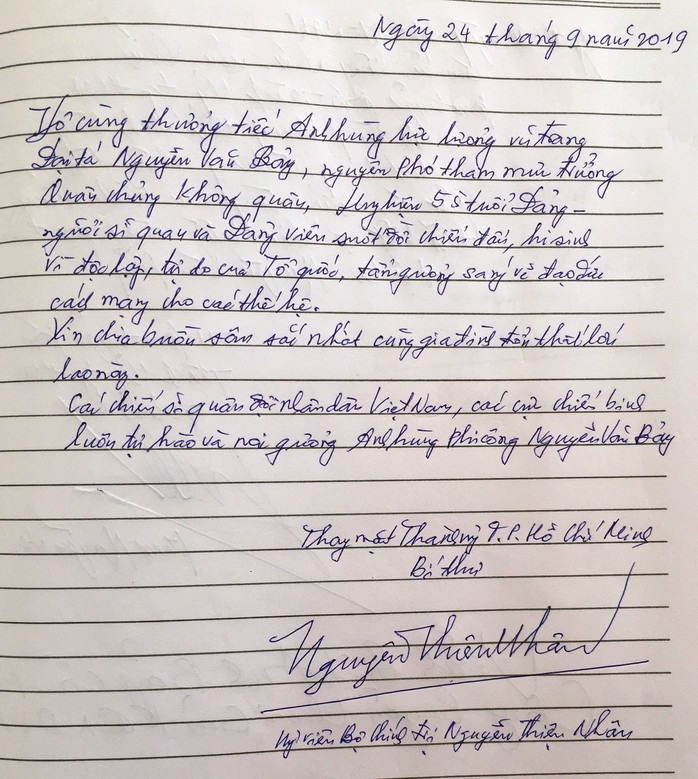 Ngày 24 tháng 9 năm 2019
Vô cùng thương tiếc Anh hùng lực lượng vũ trang
Đại tá Nguyễn Văn Bảy, nguyên Phó tham mưu trưởng
Quân chủng Không quân, Huy hiệu 55 tuổi Đảng -
người sĩ quan và Đảng viên suốt đời chiến đấu, hi sinh
vì độc lập, tự do của Tổ quốc, tấm gương sáng về đạo đức
cách mạng cho các thế hệ.
Xin chia buồn sâu sắc nhất cùng gia đình tổn thất lớn
lao này.
Các chiến sĩ quân đội nhân dân Việt Nam, các cựu chiến binh
luôn tự hào và noi gương Anh hùng Phi công Nguyễn Văn Bảy
Thay mặt Thành ủy T.P. Hồ Chí Minh
Bí thư
Nguyễn Thiện Nhân
Uỷ viên Bộ Chính trị Nguyễn Thiện Nhân